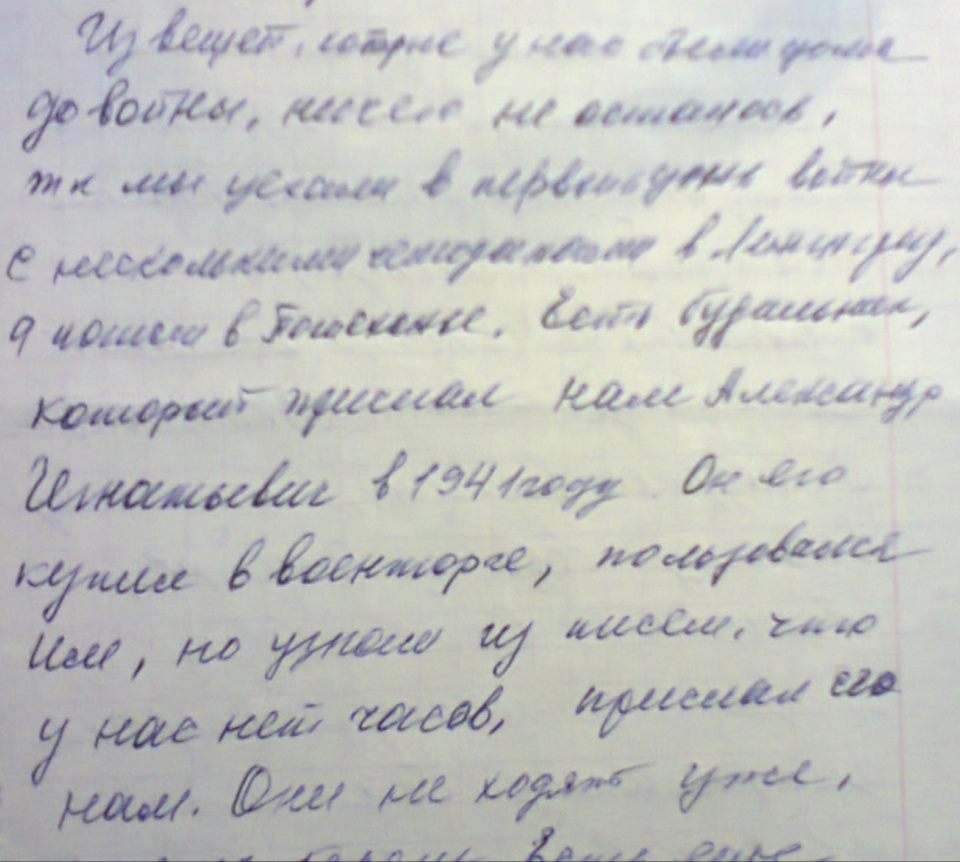 Из вещей, которые у нас были дома
до войны, ничего не осталось,
тк мы уехали в первый день войны
с несколькими чемоданами в Ленинград,
а потом в Пошехонье. Есть будильник,
который прислал нам Александр
Игнатьевич в 1941 году Он его
купил в военторге, пользовался
им, но узнал из писем, что
у нас нет часов, прислал его
нам. Они не ходят уже,